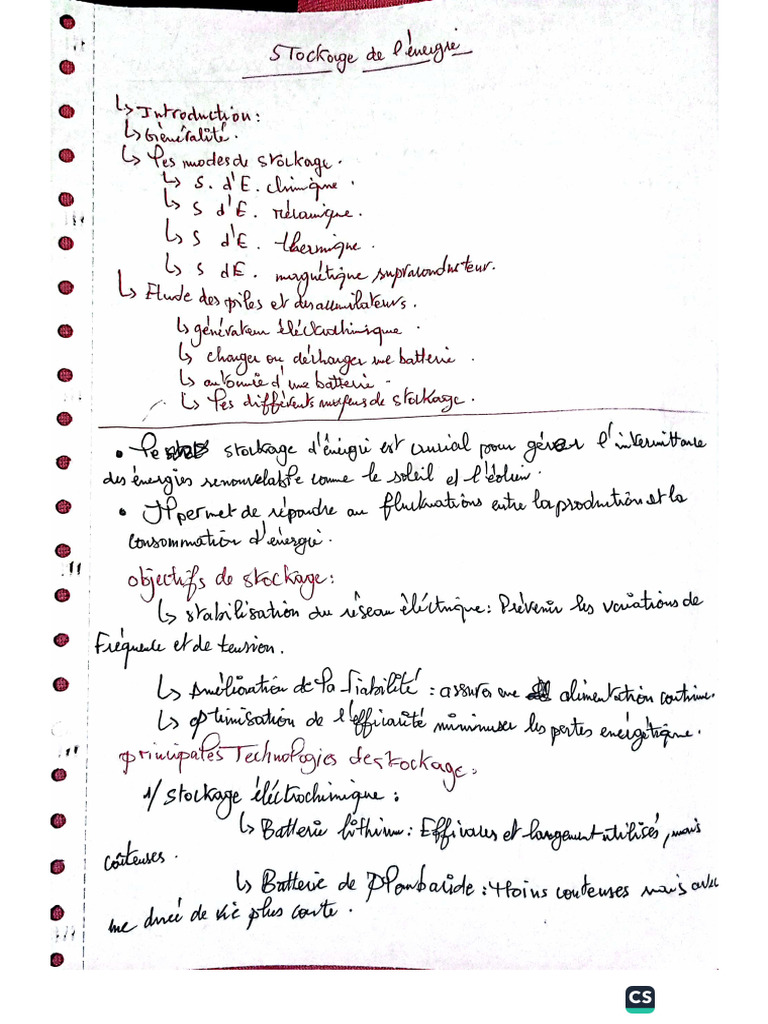 Stockage de l'énergie
↳ Introduction :
↳ Généralité.
↳ Les modes de stockage.
↳ S. d'E. chimique.
↳ S d'E. mécanique.
↳ S d'E. thermique.
↳ S dE. magnétique supraconducteur.
↳ Etude des piles et des accumilateurs.
↳ générateur éléctrochimique
↳ charger ou décharger une batterie
↳ autonomie d'une batterie
↳ Les différents moyens de stockage.
• Le stockage d'énergie est crucial pour gérer l'intermittance
des énergies renouvelable comme le soleil et l'éolien.
• Il permet de répondre au fluctuations entre la production et la
consommation d'énergie.
objectifs de stockage :
↳ stabilisation du réseau éléctrique : Prévenir les variations de
Fréquence et de tension.
↳ Amélioration de la fiabilité : assurer une alimentation continue.
↳ optimisation de l'efficacité minimiser les pertes energétique.
principales Technologies de stockage :
1/ Stockage éléctrochimique :
↳ Batterie lithium : Efficaces et largement utilisés, mais
coûteuses.
↳ Batterie de Plomb acide : Moins couteuses mais avec
une durée de vie plus courte.
CS